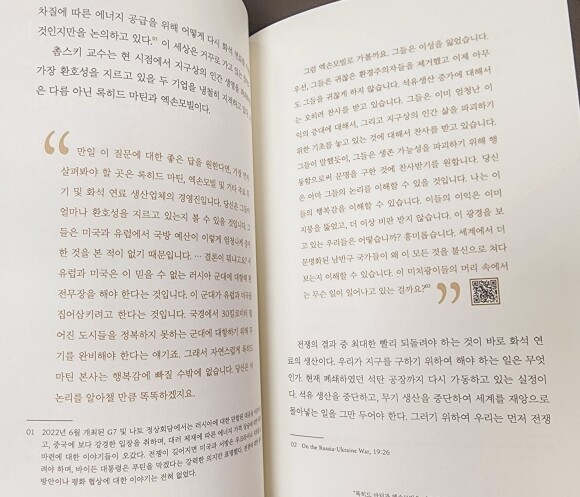 차질에 따른 에너지 공급을 위해 어떻게 다시 화석
것인지만을 논의하고 있다.01 이 세상은 거꾸로 가고
촘스키 교수는 현 시점에서 지구상의 인간 생명을
가장 환호성을 지르고 있을 두 기업을 냉철히 지적하고
은 다름 아닌 록히드 마틴과 엑슨모빌이다.
“
만일 이 질문에 대한 좋은 답을 원한다면, 가장 먼저
살펴봐야 할 곳은 록히드 마틴, 엑슨모빌 및 기타 주요 무
기 및 화석 연료 생산업체의 경영진입니다. 당신은 그들이
얼마나 환호성을 지르고 있는지 볼 수 있을 것입니다. 그
들은 미국과 유럽에서 국방 예산이 이렇게 엄청나게 증가
한 것을 본 적이 없기 때문입니다. … 결론이 뭐냐고요?
유럽과 미국은 이 믿을 수 없는 러시아 군대에 대항해 완
전무장을 해야 한다는 것입니다. 이 군대가 유럽과 미국을
집어삼키려고 한다는 것입니다. 국경에서 30킬로미터 떨
어진 도시들을 정복하지 못하는 군대에 대항하기 위해 무
기를 완비해야 한다는 얘기죠. 그래서 자연스럽게 록히드
마틴 본사는 행복감에 빠질 수밖에 없습니다. 당신은 이
논리를 알아챌 만큼 똑똑하겠지요.
01 2022년 6월 개최된 G7 및 나토 정상회담에서는 러시아에 대한 단합된 대응을
고, 중국에 보다 강경한 입장을 취하며, 대러 제재에 따른 에너지 가격
마련에 대한 이야기들이 오갔다. 전쟁이 길어지면 미국과 서방은
려야 하며, 바이든 대통령은 푸틴을 막겠다는 강력한 의지만 표명했다.
방안이나 평화 협상에 대한 이야기는 전혀 없었다.
그럼 엑슨모빌로 가볼까요. 그들은 이성을 잃었습니다.
우선, 그들은 귀찮은 환경주의자들을 제거했고 이제 아무
도 그들을 귀찮게 하지 않습니다. 석유생산 증가에 대해서
는 오히려 찬사를 받고 있습니다. 그들은 이미 엄청난 이
익의 증대에 대해서, 그리고 지구상의 인간 삶을 파괴하기
위한 기초를 놓고 있는 것에 대해서 찬사를 받고 있습니다.
그들이 말했듯이, 그들은 생존 가능성을 파괴하기 위해 행
동함으로써 문명을 구한 것에 찬사받기를 원합니다. 당신
은 아마 그들의 논리를 이해할 수 있을 것입니다. 나는 이
들의 행복감을 이해할 수 있을 것입니다. 이들의 이익은 이미
지붕을 뚫었고, 더 이상 비판 받지 않습니다. 이 광경을 보
고 있는 우리들은 어떻습니까? 흥미롭습니다. 세계에서 더
문명화된 남반구 국가들이 왜 이 모든 것을 불신으로 쳐다
보는지 이해할 수 있습니다. 이 미치광이들의 머리 속에서
는 무슨 일이 일어나고 있는 걸까요?02
”
전쟁의 결과 중 최대한 빨리 되돌려야 하는 것이 바로 화석 연
료의 생산이다. 우리가 지구를 구하기 위하여 해야 하는 일은 무엇
인가. 현재 폐쇄하였던 석탄 공장까지 다시 가동하고 있는 실정이
다. 석유 생산을 중단하고, 무기 생산을 중단하여 세계를 재앙으로
몰아넣는 일을 그만 두어야 한다. 그러기 위하여 우리는 먼저 전쟁
02 On the Russia-Ukraine War, 19:26